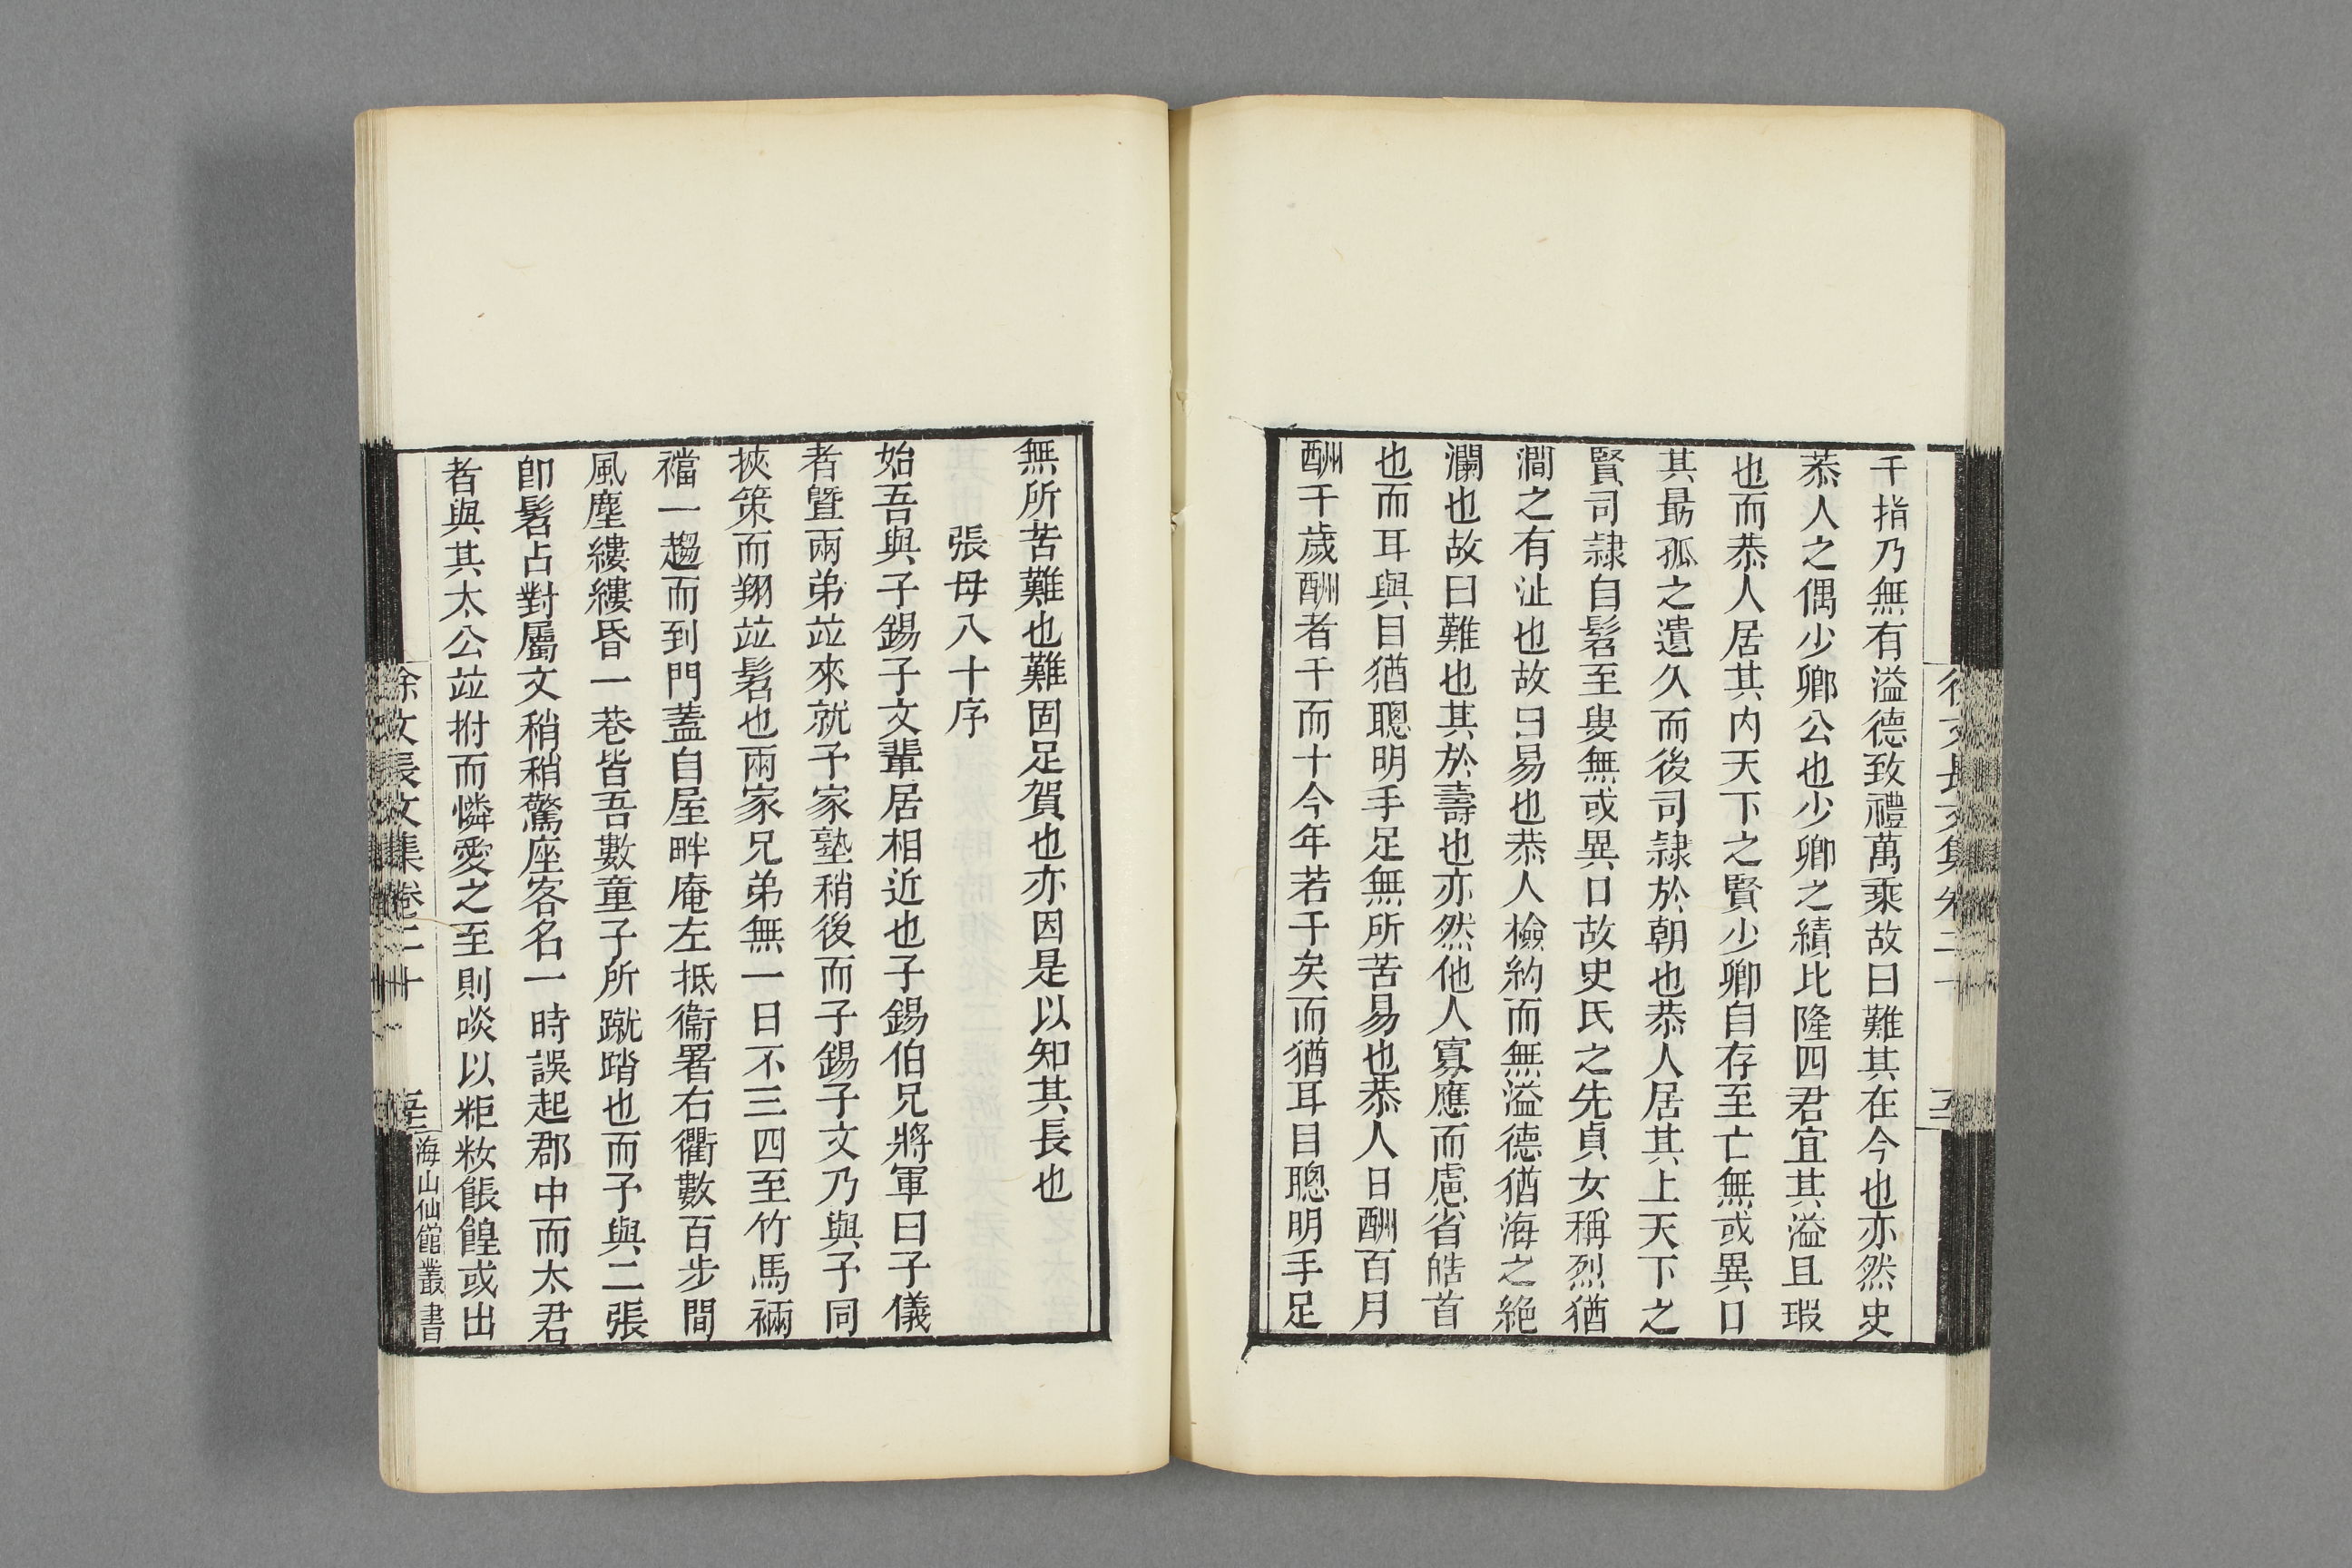 千指乃無有溢德致禮萬乘故曰難其在今也亦然史
恭人之偶少卿公也少卿之績比隆四君宜其溢且瑕
也而恭人居其内天下之賢少卿自存至亡無或異口
其最孤之遺久而後司隷於朝也恭人居其上天下之
賢司隷自髫至叟無或異口故史氏之先貞女稱烈猶
澗之有沚也故曰易也恭人檢約而無溢德猶海之絶
瀾也故曰難也其於壽也亦然他人寡應而慮省皓首
也而耳與目猶聰明手足無所苦易也恭人日酬百月
酬千歲酬者千而十今年若干矣而猶耳目聰明手足
無所苦難也難固足賀也亦因是以知其長也
張母八十序
始吾與子錫子文輩居相近也子錫伯兄將軍曰子儀
者曁兩弟並來就予家塾稍後而子錫子文乃與予同
挾策而翔並髫也兩家兄弟無一日不三四至竹馬裲
襠一趨而到門蓋自屋畔庵左抵衞署右衢數百步間
風塵縷縷昏一巷皆吾數童子所蹴踏也而予與二張
卽髫占對屬文稍稍驚座客名一時誤起郡中而太君
者與其太公並拊而憐愛之至則啖以粔籹餦餭或出
徐文長文集卷二十
海山仙館叢書